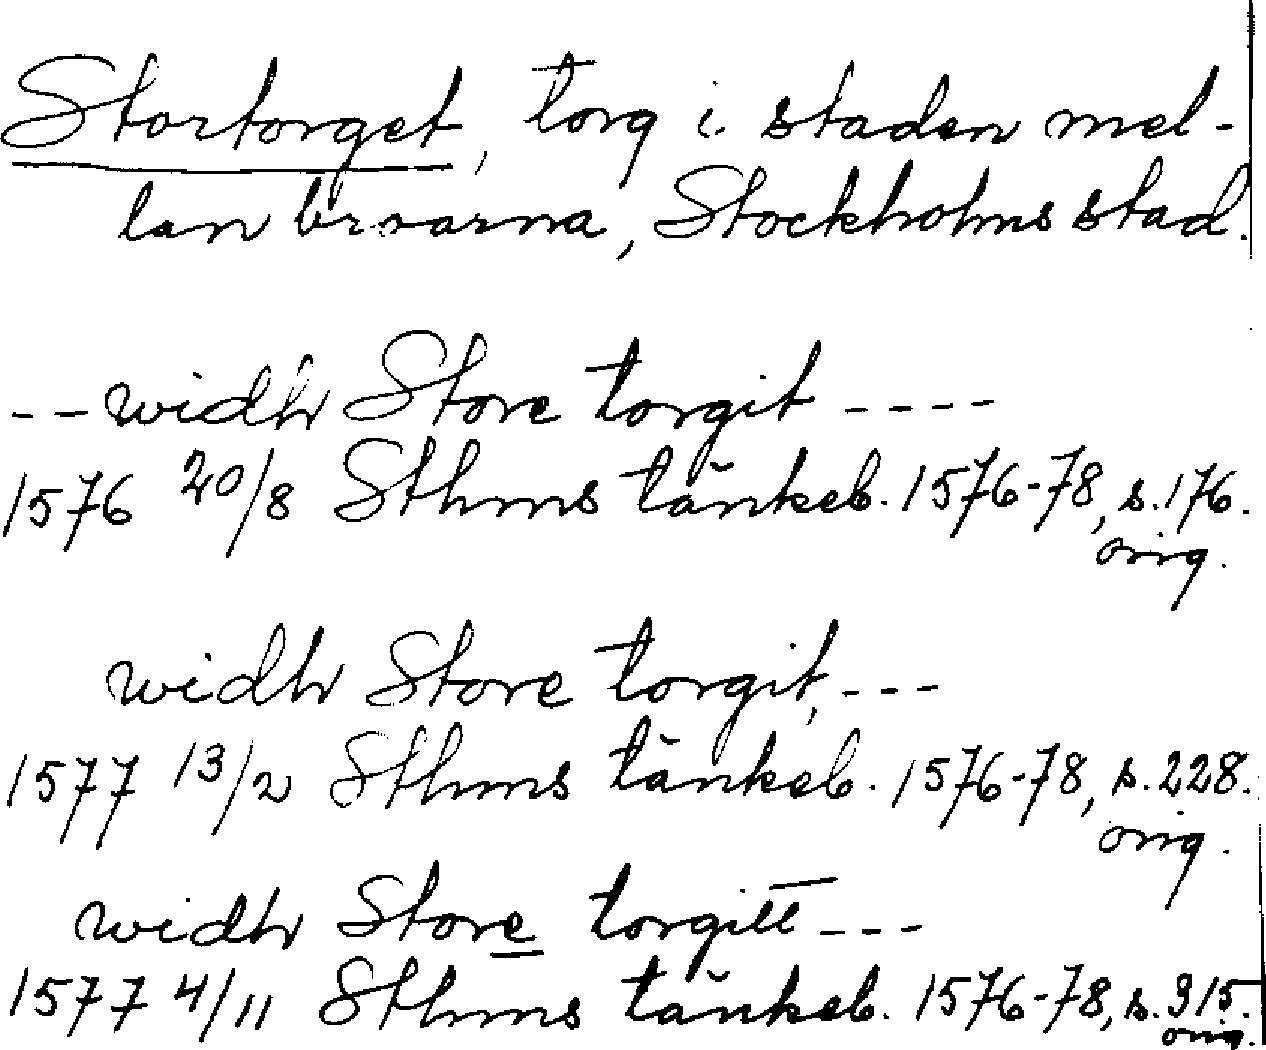 Stortorget, torg i staden mel-
lan broarna, Stockholms stad.
-- widh Store torgit ----
1576 20/8 Sthms tänkeb. 1576-78, s. 176.
orig.
widh Store torgit, ---
1577 13/2 Sthms tänkeb. 1576-78, s. 228.
orig.
widh Store torgitt ---
1577 4/11 Sthms tänkeb. 1576-78, s. 315.
orig.